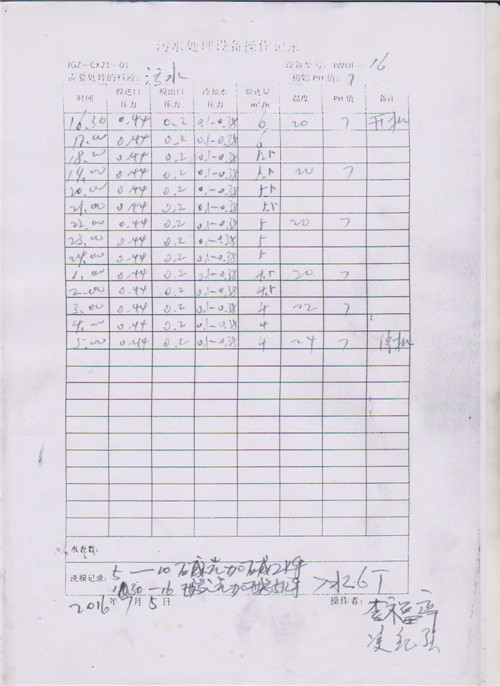 污水处理设备操作记录
JGZ-CX21-01 设备型号: IWUF-16
需要处理的料液: 污水 初始PH值: 7
时间 膜进口压力 膜出口压力 冷却水压力 膜透量 m³/h 温度 PH值 备注
16.30 0.44 0.2 0.1-0.38 6 20 7 开机
17.00 0.44 0.2 0.1-0.38 6
18.00 0.44 0.2 0.1-0.38 5.5
19.00 0.44 0.2 0.1-0.38 5.5 20 7
20.00 0.44 0.2 0.1-0.38 5.5
21.00 0.44 0.2 0.1-0.38 5.5
22.00 0.44 0.2 0.1-0.38 5 20 7
23.00 0.44 0.2 0.1-0.38 5
24.00 0.44 0.2 0.1-0.38 5
1.00 0.44 0.2 0.1-0.38 4.5 20 7
2.00 0.44 0.2 0.1-0.38 4.5
3.00 0.44 0.2 0.1-0.38 4 22 7
4.00 0.44 0.2 0.1-0.38 4
5.00 0.44 0.2 0.1-0.38 4 24 7 停机
水表数:
洗膜记录: 5—10 碱洗加碱
30-16 酸洗加酸
水6T
2016年 7月5日 操作者: 李福